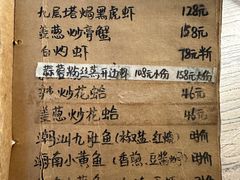 九层塔焗黑虎虾 128元
姜葱炒膏蟹 158元
白灼虾 78元/半斤
蒜蓉粉丝蒸开边虾 108元小份 158元大份
炒花蛤 46元
姜葱炒花蛤 46元
潮汕九肚鱼(椒盐、红烧) 时价
海南小黄鱼(香煎、豆浆焗) 时价